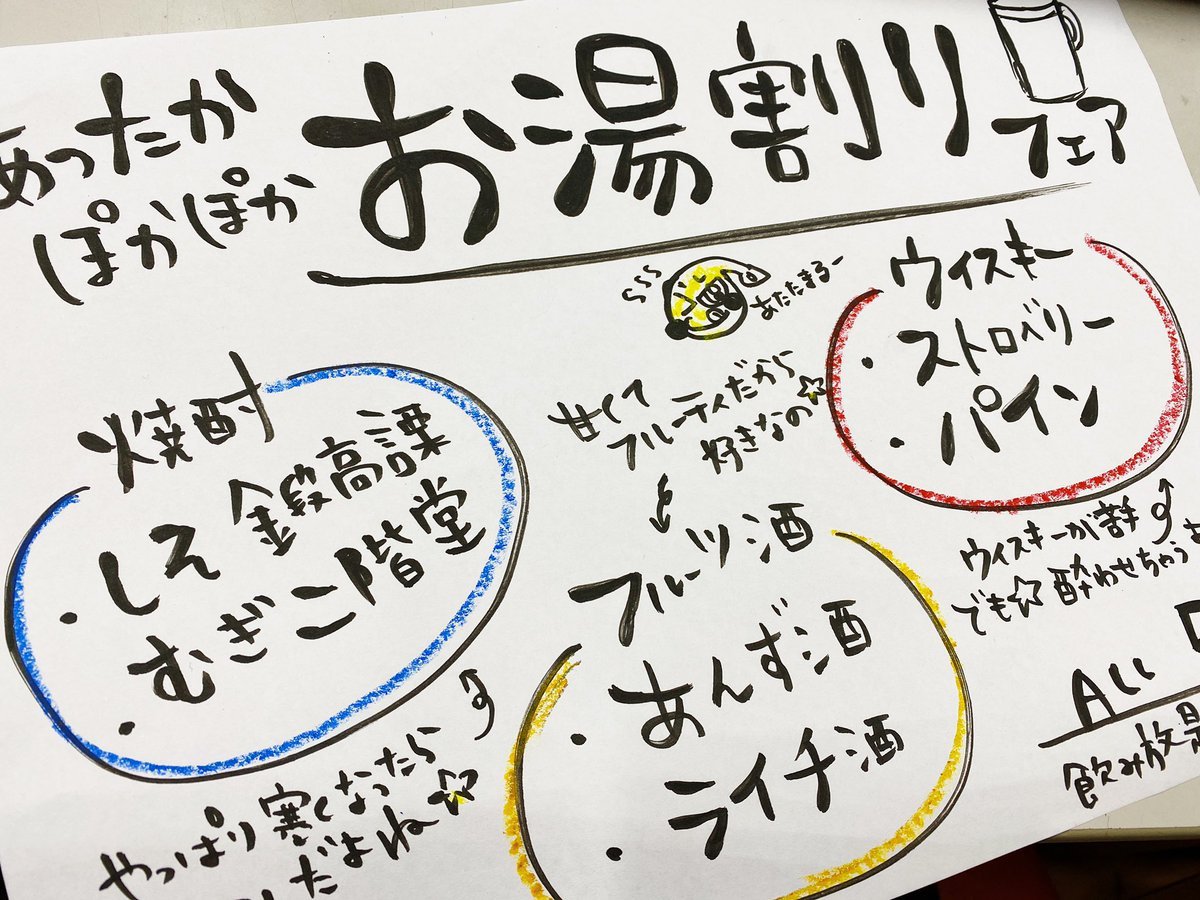 あったか
ぽかぽか
お湯割り
フェア
あたたまるー
ウィスキー
・ストロベリー
・パイン
焼酎
・しそ 鍛高譚
・むぎ 二階堂
甘くて
フルーティだから
好きなの☆
フルーツ酒
・あんず酒
・ライチ酒
ウィスキーが苦手
でも☆酔わせちゃうよ
ALL
飲み放題
やっぱり寒くなったら
だよね☆